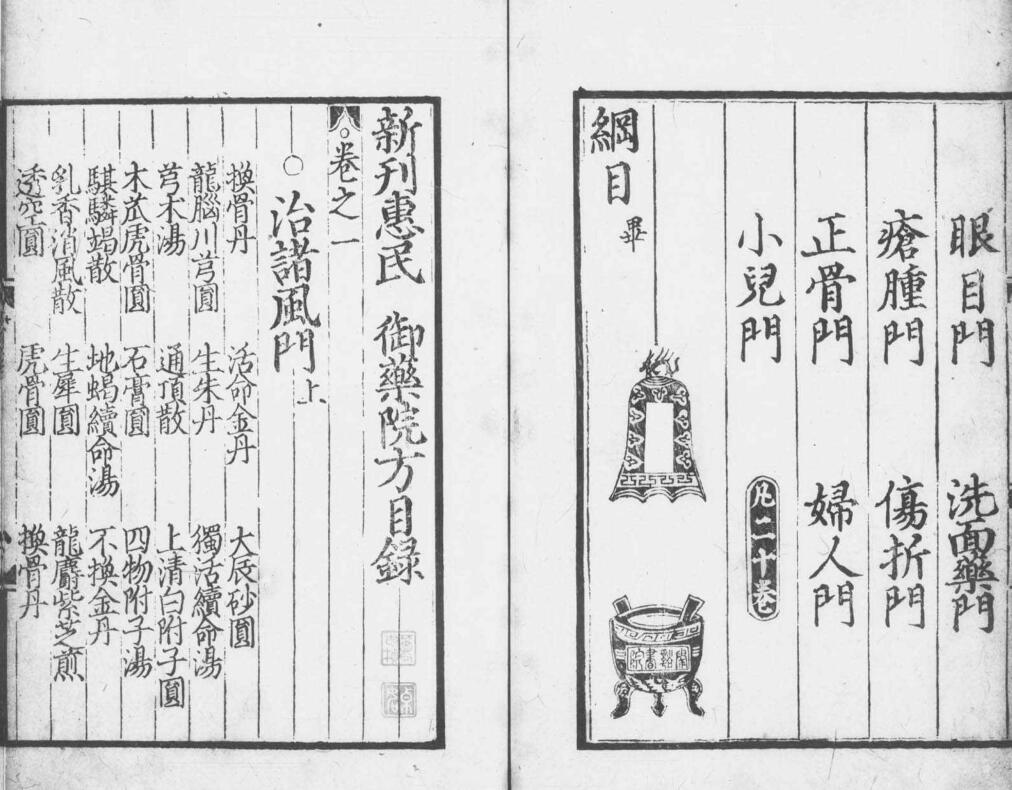 眼目門 洗面藥門
瘡腫門 傷折門
正骨門 婦人門
小兒門 凡二十卷
綱目畢
南谿書院
新刊惠民御藥院方目録
卷之一
○治諸風門上
換骨丹 活命金丹 大辰砂圓
龍腦川芎圓 生朱丹 獨活續命湯
芎朮湯 通頂散 上清白附子圓
木瓜虎骨圓 石膏圓 四物附子湯
騏驎竭散 地蝎續命湯 不換金丹
乳香消風散 生犀圓 龍麝紫芝煎
透空圓 虎骨圓 換骨丹